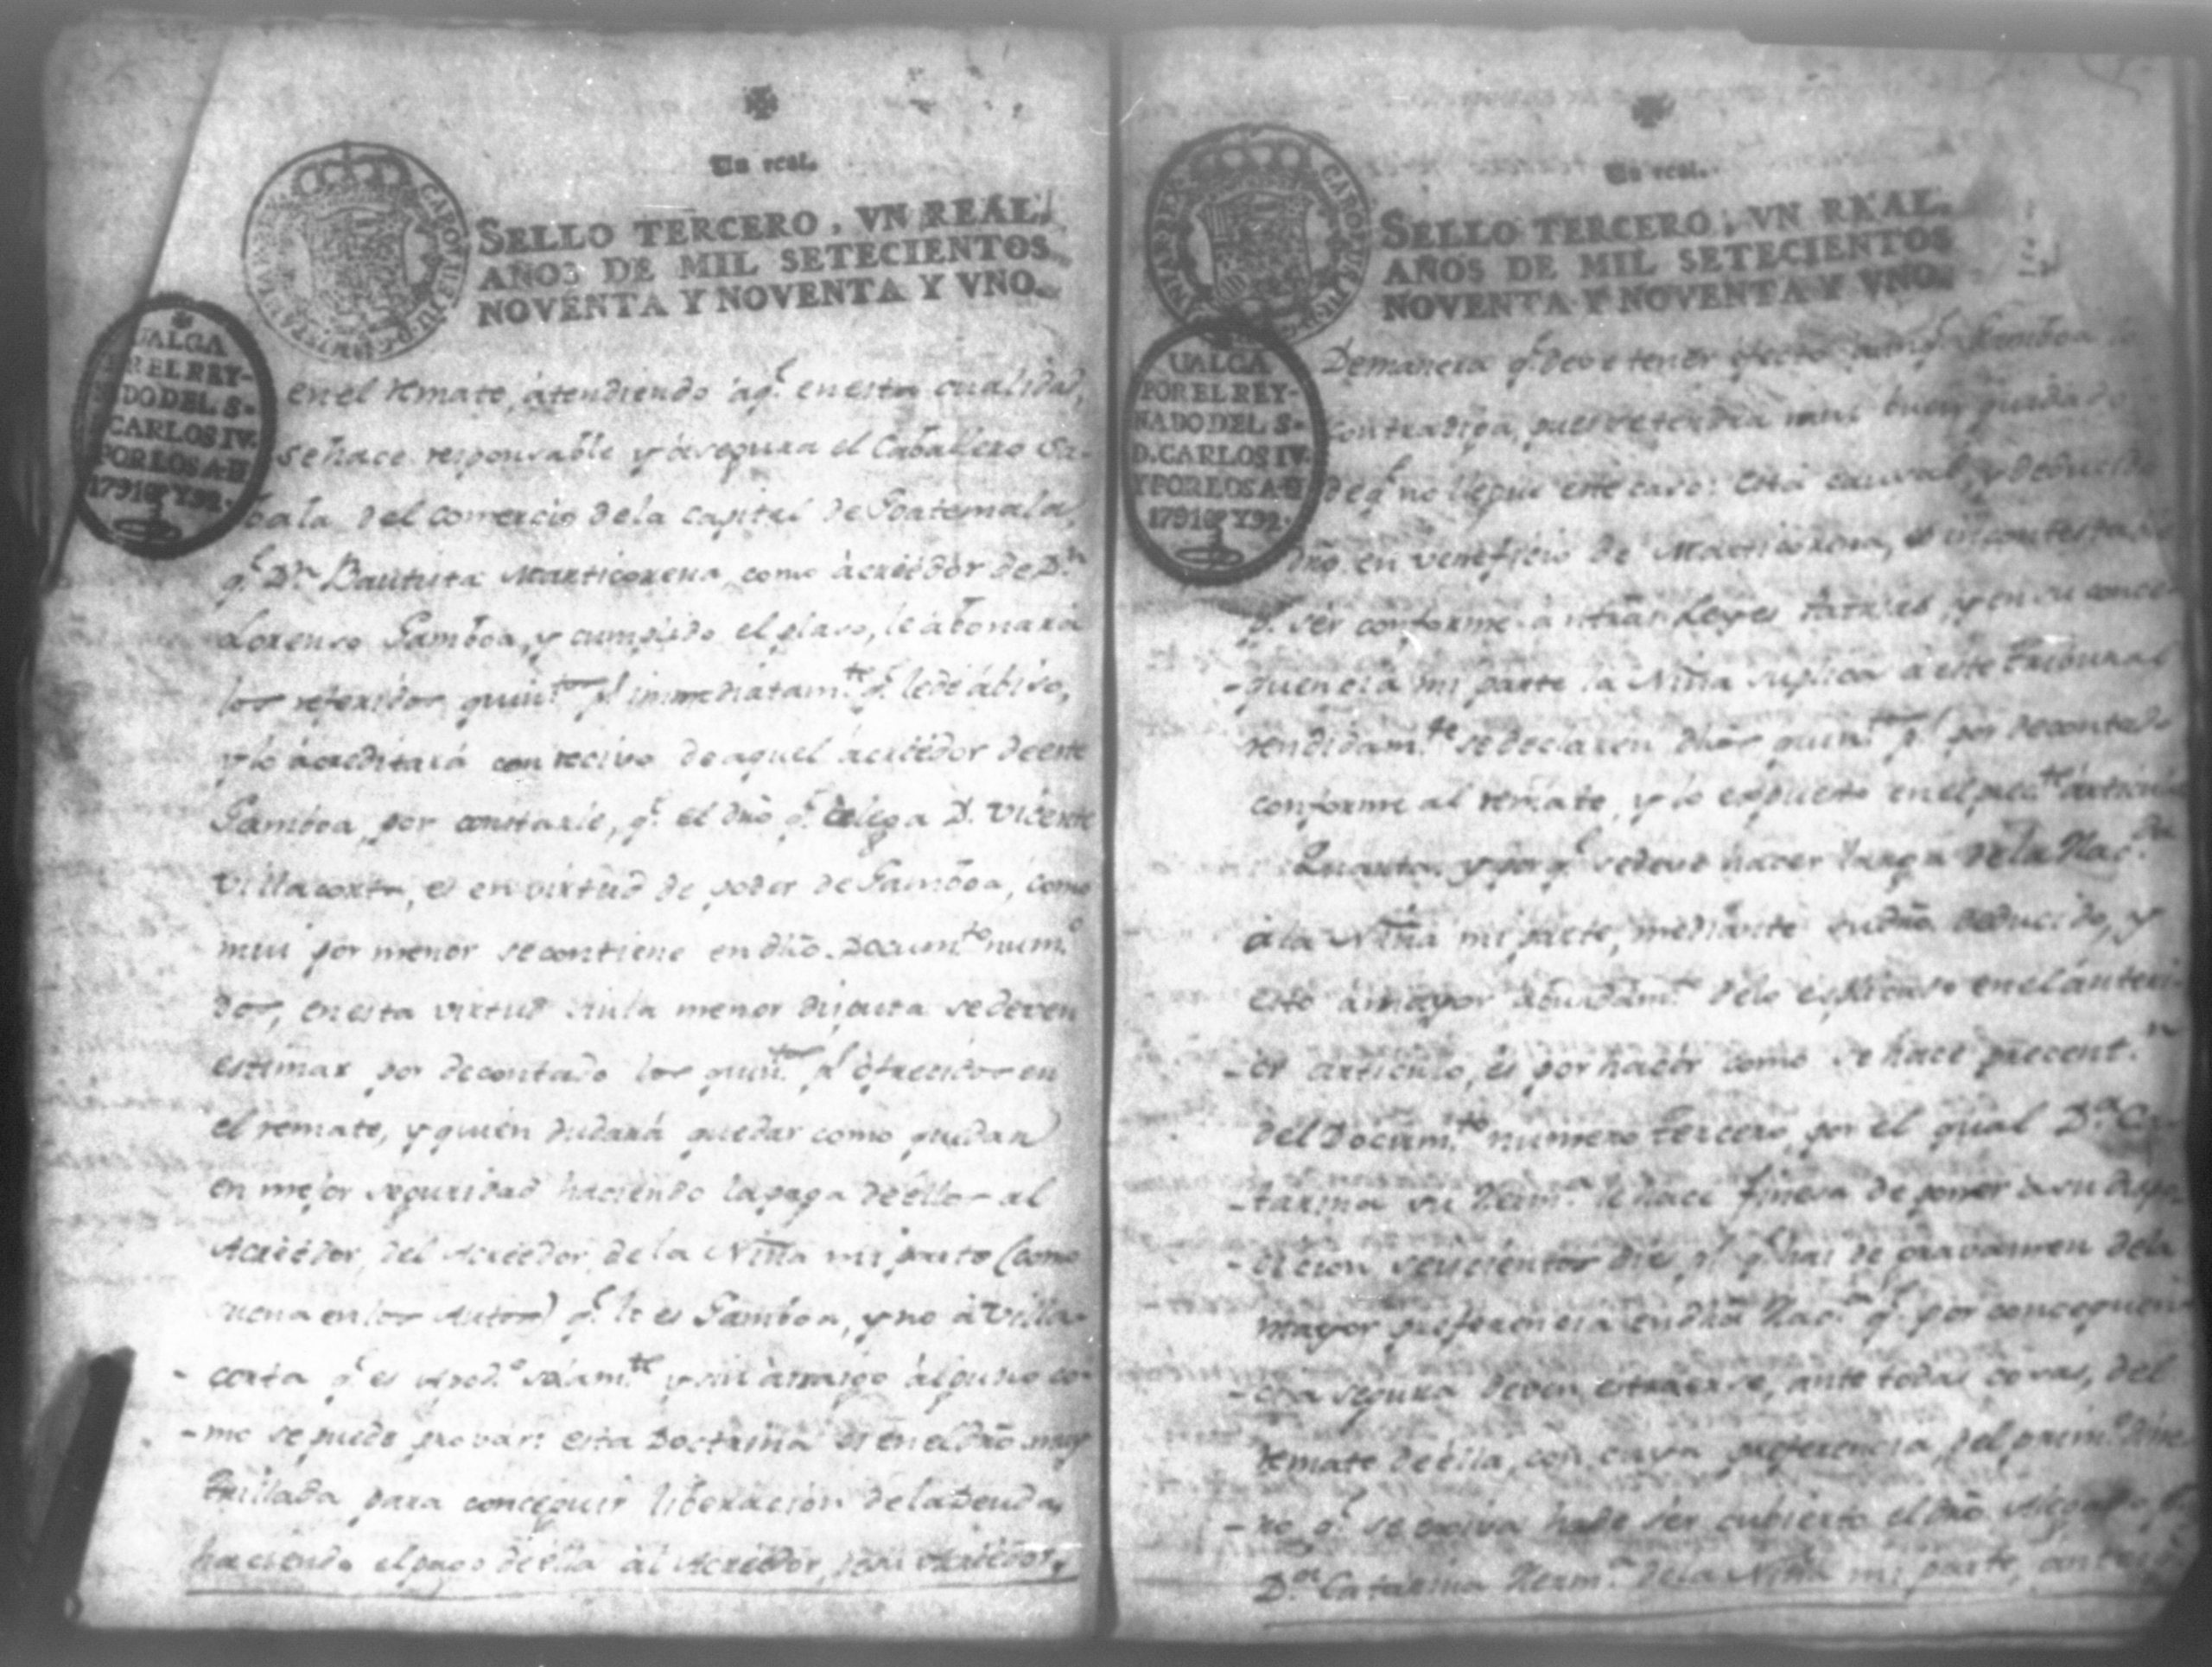 Un real.
SELLO TERCERO, VN REAL,
AÑOS DE MIL SETECIENTOS
NOVENTA Y NOVENTA Y VNO.
UALGA
POR EL REY-
NADO DEL S.
D. CARLOS IV.
Y POR LOS A.
1791 Y 92.
en el remate, atendiendo aq.e en esta cualidad,
se hace responsable y asegura el Caballero
del comercio dela capital de Goatemala,
q.e D.n Bautista Marticorena, como acreédor de D.n
Lorenso Gamboa, y cumplido el plaso, le abonará
los referidos quin.tos p.s immediatam.te q.e le dé abiso,
y lo acreditará con recivo de aquel acreédor de este
Gamboa, por constarle, q.e el dño q.e alega D. Vicente
Villacorta, es en virtud de poder de Gamboa, como
mui por menor se contiene en dho. Docum.to num.o
dos, en esta virtud sin la menor disputa se deven
estimar por decontado los quin.tos p.s ofrecidos en
el remate, y quién dudará quedar como quedan
en mejor seguridad haciendo la paga de éllos al
Acreédor, del Acreédor, de la Niña mi parte (como
suena en los Autos) q.e lo es Gamboa, y no á Villa-
corta q.e es Apod.o solam.te y sin arraigo alguno co-
-mo se puede provar: esta Doctrina es en el dño muy
trillada para conceguir liberacion de la Deuda,
haciendo el pago de élla al Acreédor, de su Acreédor,
Un real.
SELLO TERCERO, VN REAL,
AÑOS DE MIL SETECIENTOS
NOVENTA Y NOVENTA Y VNO.
UALGA
POR EL REY-
NADO DEL S.
D. CARLOS IV.
Y POR LOS A.
1791 Y 92.
Demanera q.e deve tener efecto aunq.e Gamboa lo
contradiga, pues se tendrá mui buen
de q.e no llegue este caso: esta
dño en veneficio de Marticorena, es incontestable
p.r ser conforme a ntras Leyes Patrias, y en su conce-
-quencia mi parte la Niña suplica a este Tribunal
rendidam.te se declaren dhos quin.tos p.s por decontado
conforme al remate, y lo expuesto en el prec.te articulo
Quarto. y porq.e se deve hacer de la Hac.da
á la Niña mi parte, mediante su dño deducido, y
esto á mayor abundam.to delo expresado en el anteri-
-or articulo, es por hacér como se hace precent.n
del Docum.to numero tercero, por el qual D.a Ca-
-tarina su Herm.a le hace finesa de poner á su dispo-
-cicion seiscientos p.s q.e hai de gravamen de la
mayor preferencia en dha Hac.da q.e por concequen-
-cia segura deven extraerse, ante todas cosas, del
remate de élla, con cuya preferencia, del prim.o dine-
-ro q.e se exciva ha de ser cubierto el dño
D.a Catarina Herm.a de la Niña mi parte,